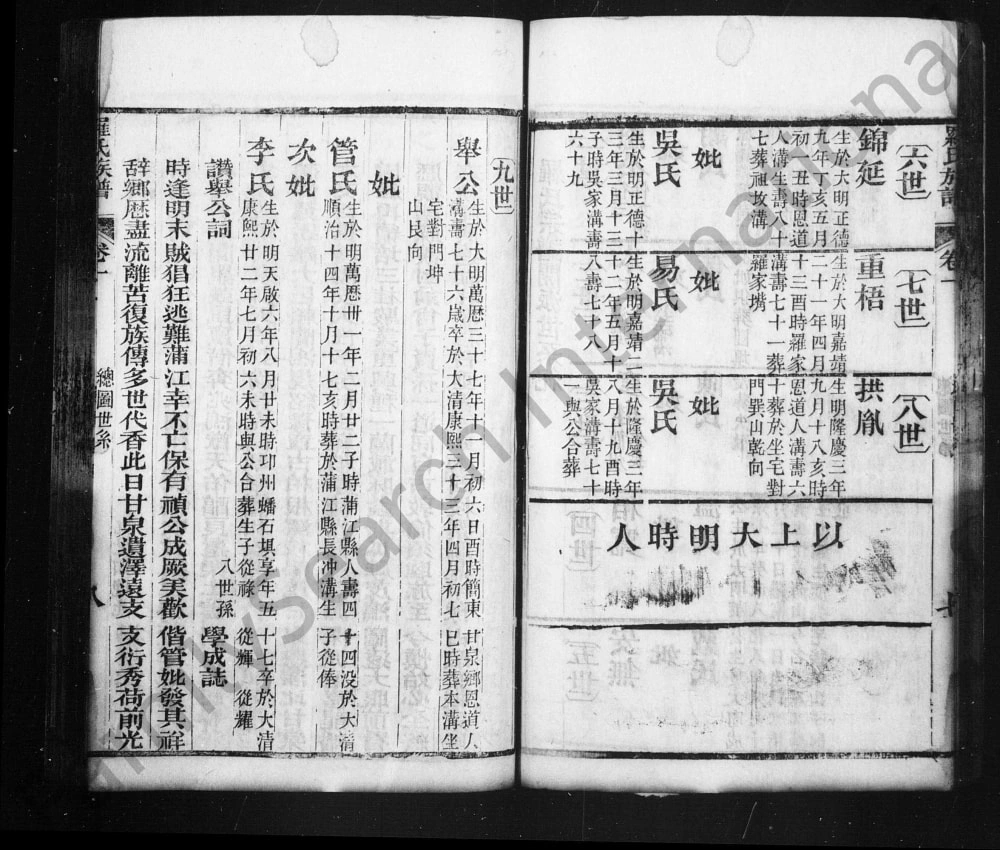 六世
錦延
生於大明正德
九年丁亥五月
初一丑時恩道
人溝生壽八十
七葬祖坟溝
妣
吳氏
生於明正德十
三年三月十三
子時吳家溝壽
六十九
七世
重梧
生於大明嘉靖
二十一年四月
十三酉時羅家
溝壽七十一葬
羅家嘴
妣
易氏
生於明嘉靖二
十二年五月十
八壽七十八
八世
拱胤
生明隆慶三年
九月十八亥時
恩道人溝壽六
十葬於坐宅對
門巽山乾向
妣
吳氏
生於隆慶三年
八月十九酉時
吳家溝壽七十
一與公合葬
以上大明時人
羅氏族譜
卷一
九世
舉公
生於大明萬曆三十七年十一月初六日酉時簡東甘泉鄉恩道人
溝壽七十六歲卒於大清康熙二十三年四月初七巳時葬本溝坐
宅對門坤
山艮向
妣
管氏
生於明萬曆卅一年二月廿二子時蒲江縣人壽四十四沒於大清
順治十四年十月十七亥時葬於蒲江縣長冲溝生子從俸
次妣
李氏
生於明天啟六年八月廿未時卭州蟠石埧享年五十七卒於大清
康熙廿二年七月初六未時與公合葬生子從祿 從輝 從耀
讚舉公詞
八世孫 學成誌
時逢明末賊猖狂逃難蒲江幸不亡保有禎公成厥美歡偕管妣發其祥
辭鄉歷盡流離苦復族傳多世代香此日甘泉遺澤遠支支衍秀荷前光
羅氏族譜
卷一
總圖世系
八